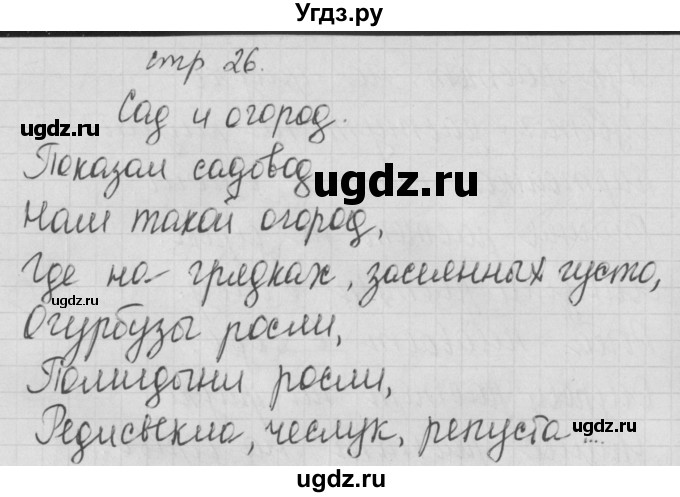 Угдз.ру
стр 26.
Сад и огород.
ugdz.ru
Показал садовод
ugdz.ru
ugdz.ru
Нам такой огород,
Где на грядках, засеянных густо,
ugdz.ru
Огурбузы росли,
Помидыни росли,
ugdz.ru
Редисвекла, чеслук, репуста...
ugdz.ru
ugdz.ru